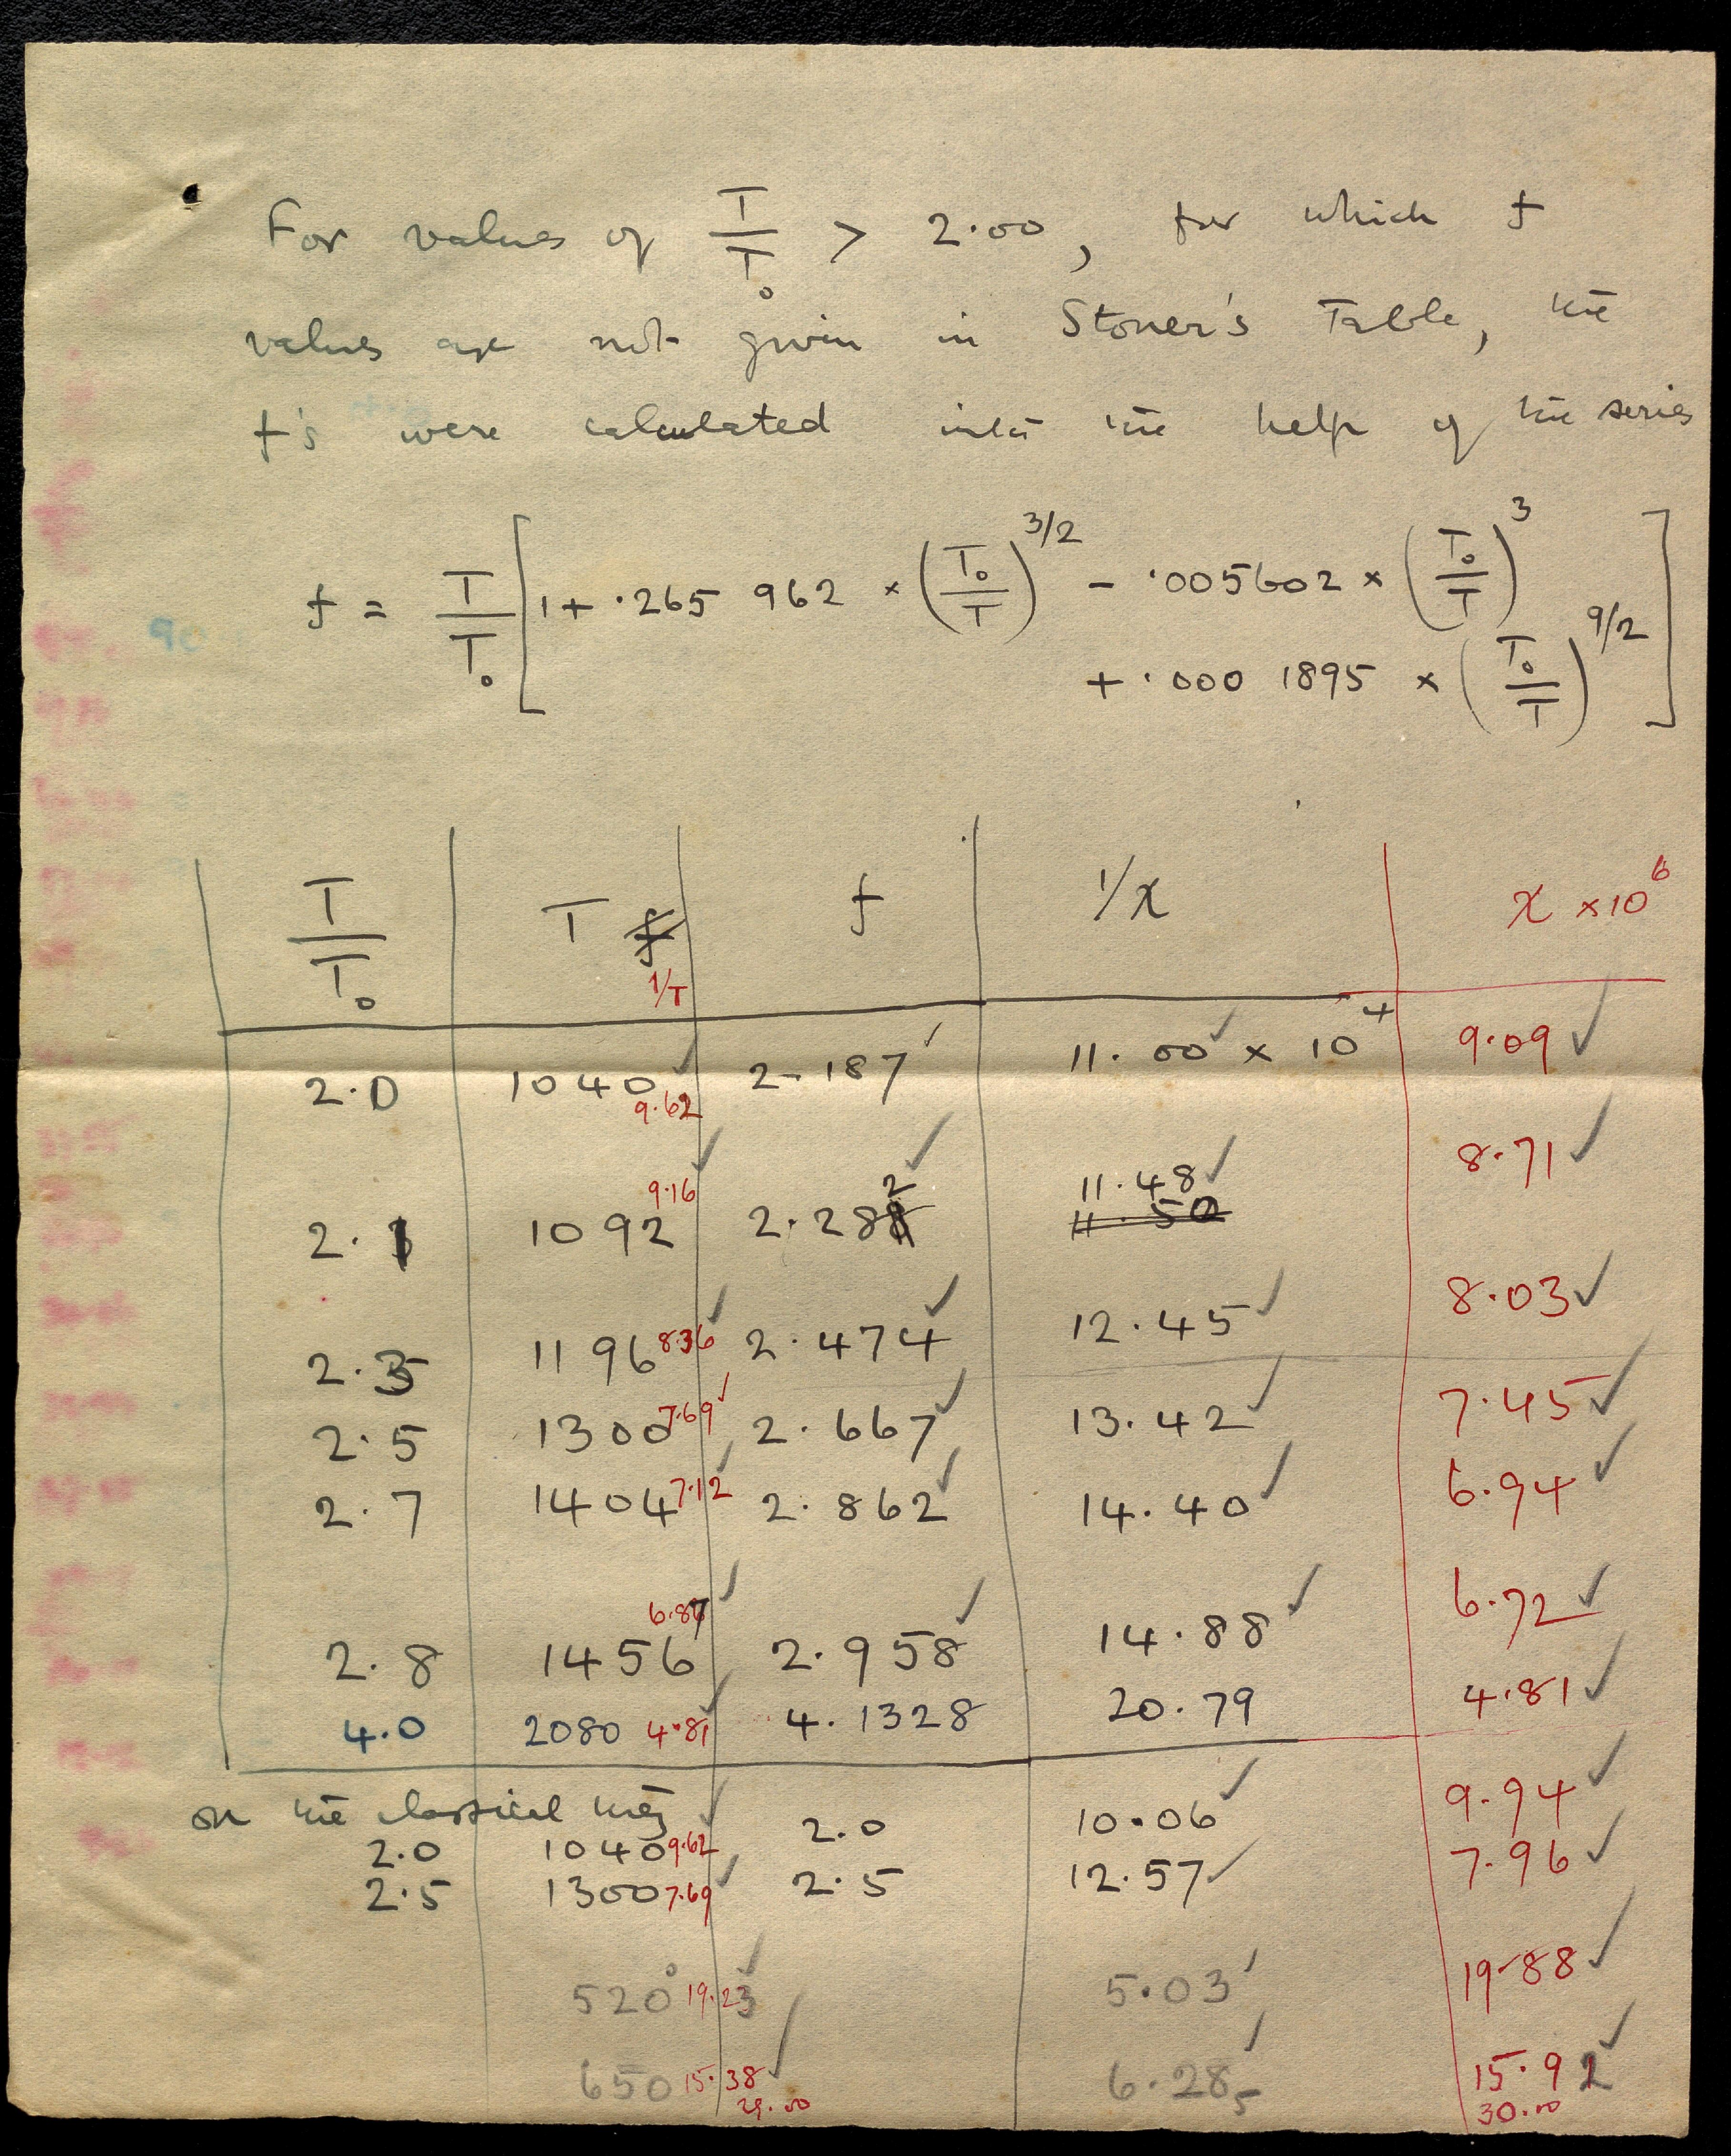 For values of T/T₀ > 2·00, for which f
values are not given in Stoner's Table, the
f's were calculated with the help of the series
f = T/T₀ [ 1 + ·265 962 × (T₀/T)^3/2 − ·005602 × (T₀/T)^3
+ ·000 1895 × (T₀/T)^9/2 ]
T/T₀ T f 1/T f 1/χ χ ×10⁶
2·0 1040 ✓ 9·62 2·187 ✓ 11·00 ✓ × 10⁴ 9·09 ✓
2·1 1092 9·16 ✓ 2·282 ✓ 11·48 ✓ 11·50 8·71 ✓
2·3 1196 8·36 ✓ 2·474 ✓ 12·45 ✓ 8·03 ✓
2·5 1300 7·69 ✓ 2·667 ✓ 13·42 ✓ 7·45 ✓
2·7 1404 7·12 ✓ 2·862 ✓ 14·40 ✓ 6·94 ✓
2·8 1456 6·87 ✓ 2·958 ✓ 14·88 ✓ 6·72 ✓
4·0 2080 4·81 ✓ 4·1328 20·79 4·81 ✓
on the classical theory
2·0 1040 9·62 ✓ 2·0 10·06 ✓ 9·94 ✓
2·5 1300 7·69 ✓ 2·5 12·57 ✓ 7·96 ✓
520° 19·23 ✓ 5·03 ✓ 19·88 ✓
650 15·38 ✓ 6·285 ✓ 15·92 ✓
29·00 30·00